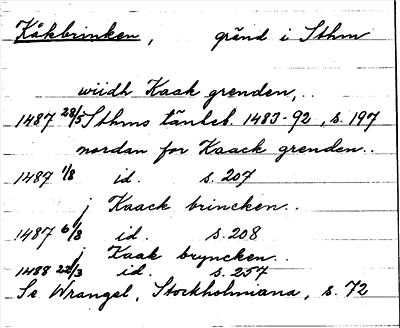 Kåkbrinken, gränd i Sthm
wiidh Kaack grenden,..
1487 28/5 Sthms tänkeb. 1483-92, s. 197
nordan for Kaack grenden..
1487 1/8 id. s. 207
j Kaack brincken..
1487 6/8 id. s. 208
j Kaak bryncken..
1488 22/3 id. s. 257
Se Wrangel, Stockholmiana, s. 72